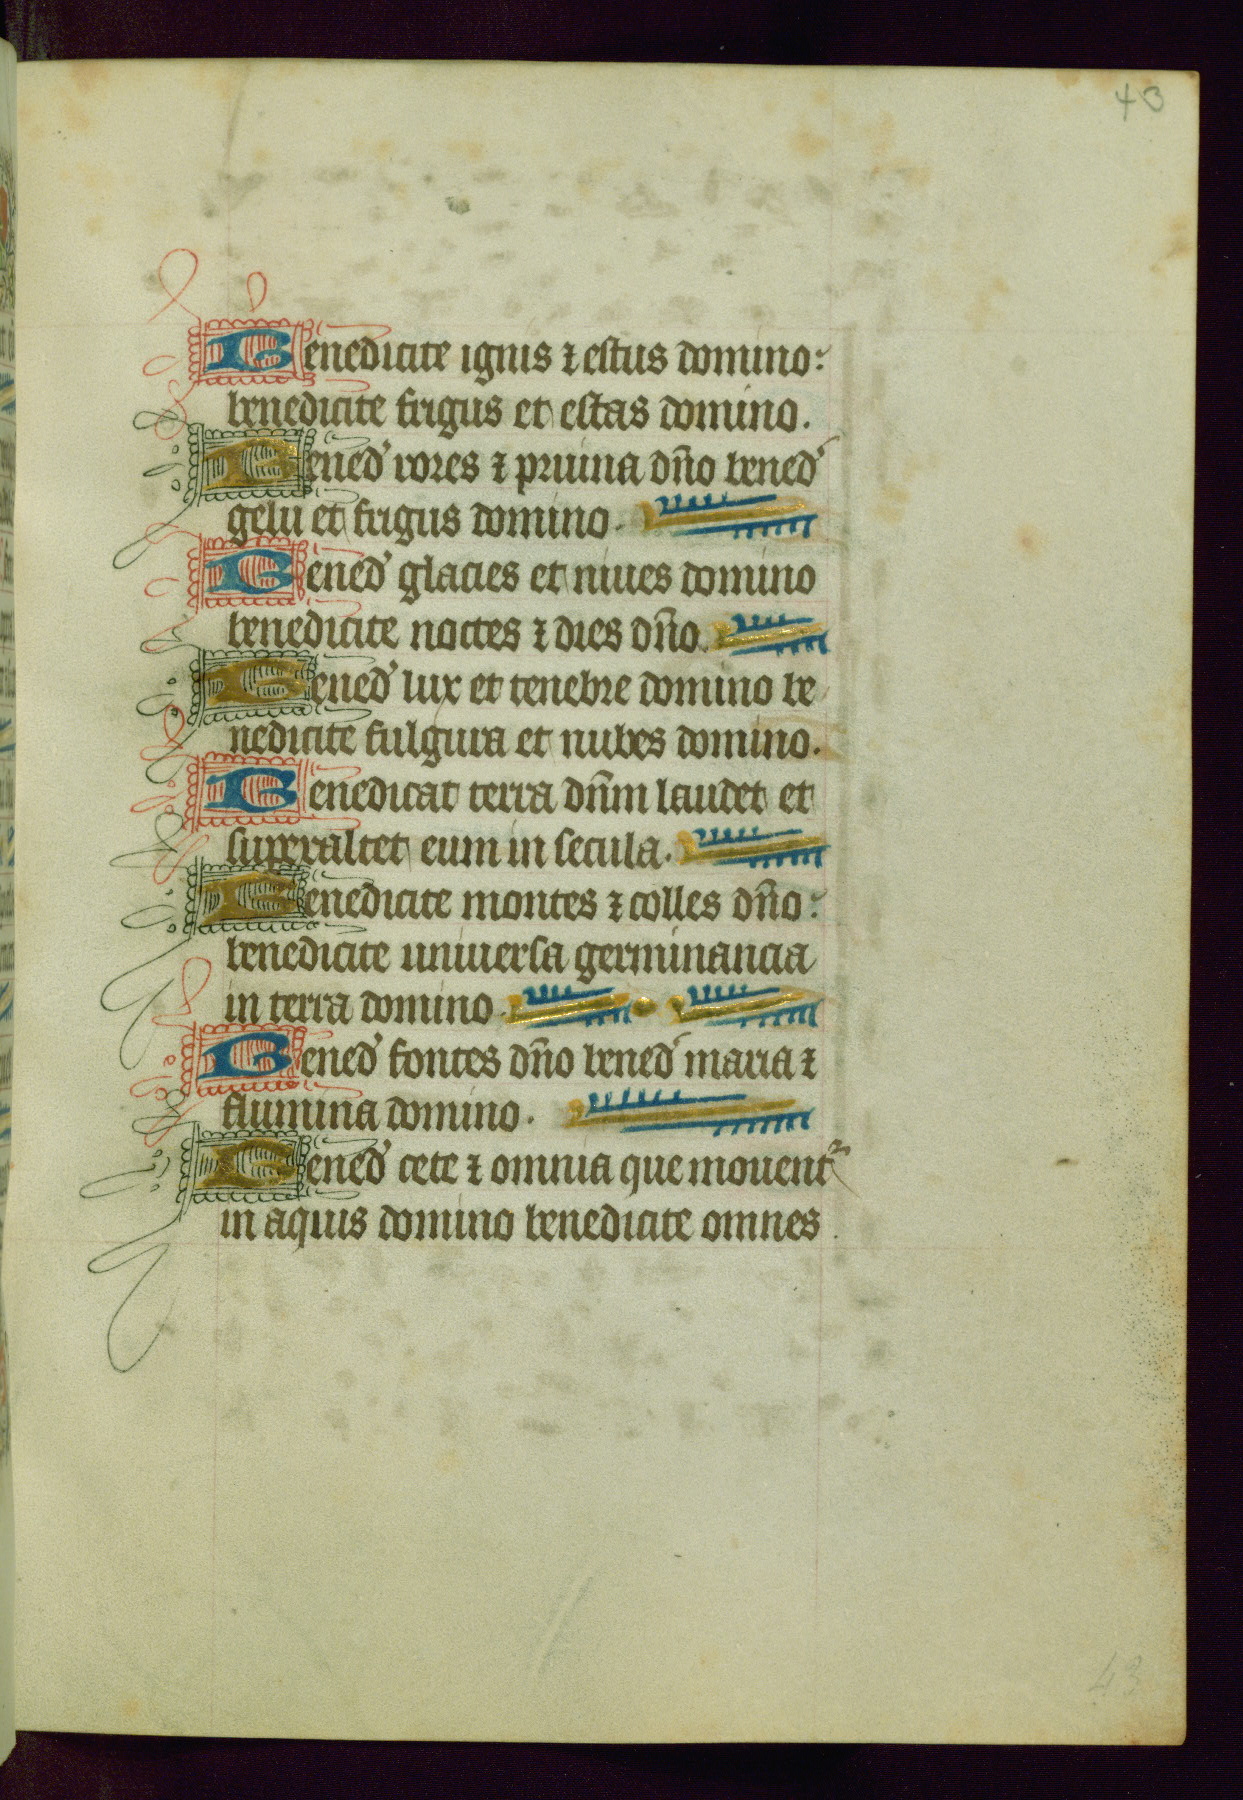 43
Benedicite ignis ⁊ estus domino:
benedicite frigus et estas domino.
Bened̉ rores ⁊ pruina dño bened̉
gelu et frigus domino.
Bened̉ glacies et niues domino
benedicite noctes ⁊ dies dño.
Bened̉ lux et tenebre domino be
nedicite fulgura et nubes domino.
Benedicat terra dñm laudet et
superaltet eum in secula.
Benedicite montes ⁊ colles dño:
benedicite uniuersa germinancia
in terra domino.
Bened̉ fontes dño bened̉ maria ⁊
flumina domino.
Bened̉ cete ⁊ omnia que mouent᷑
in aquis domino benedicite omnes
43